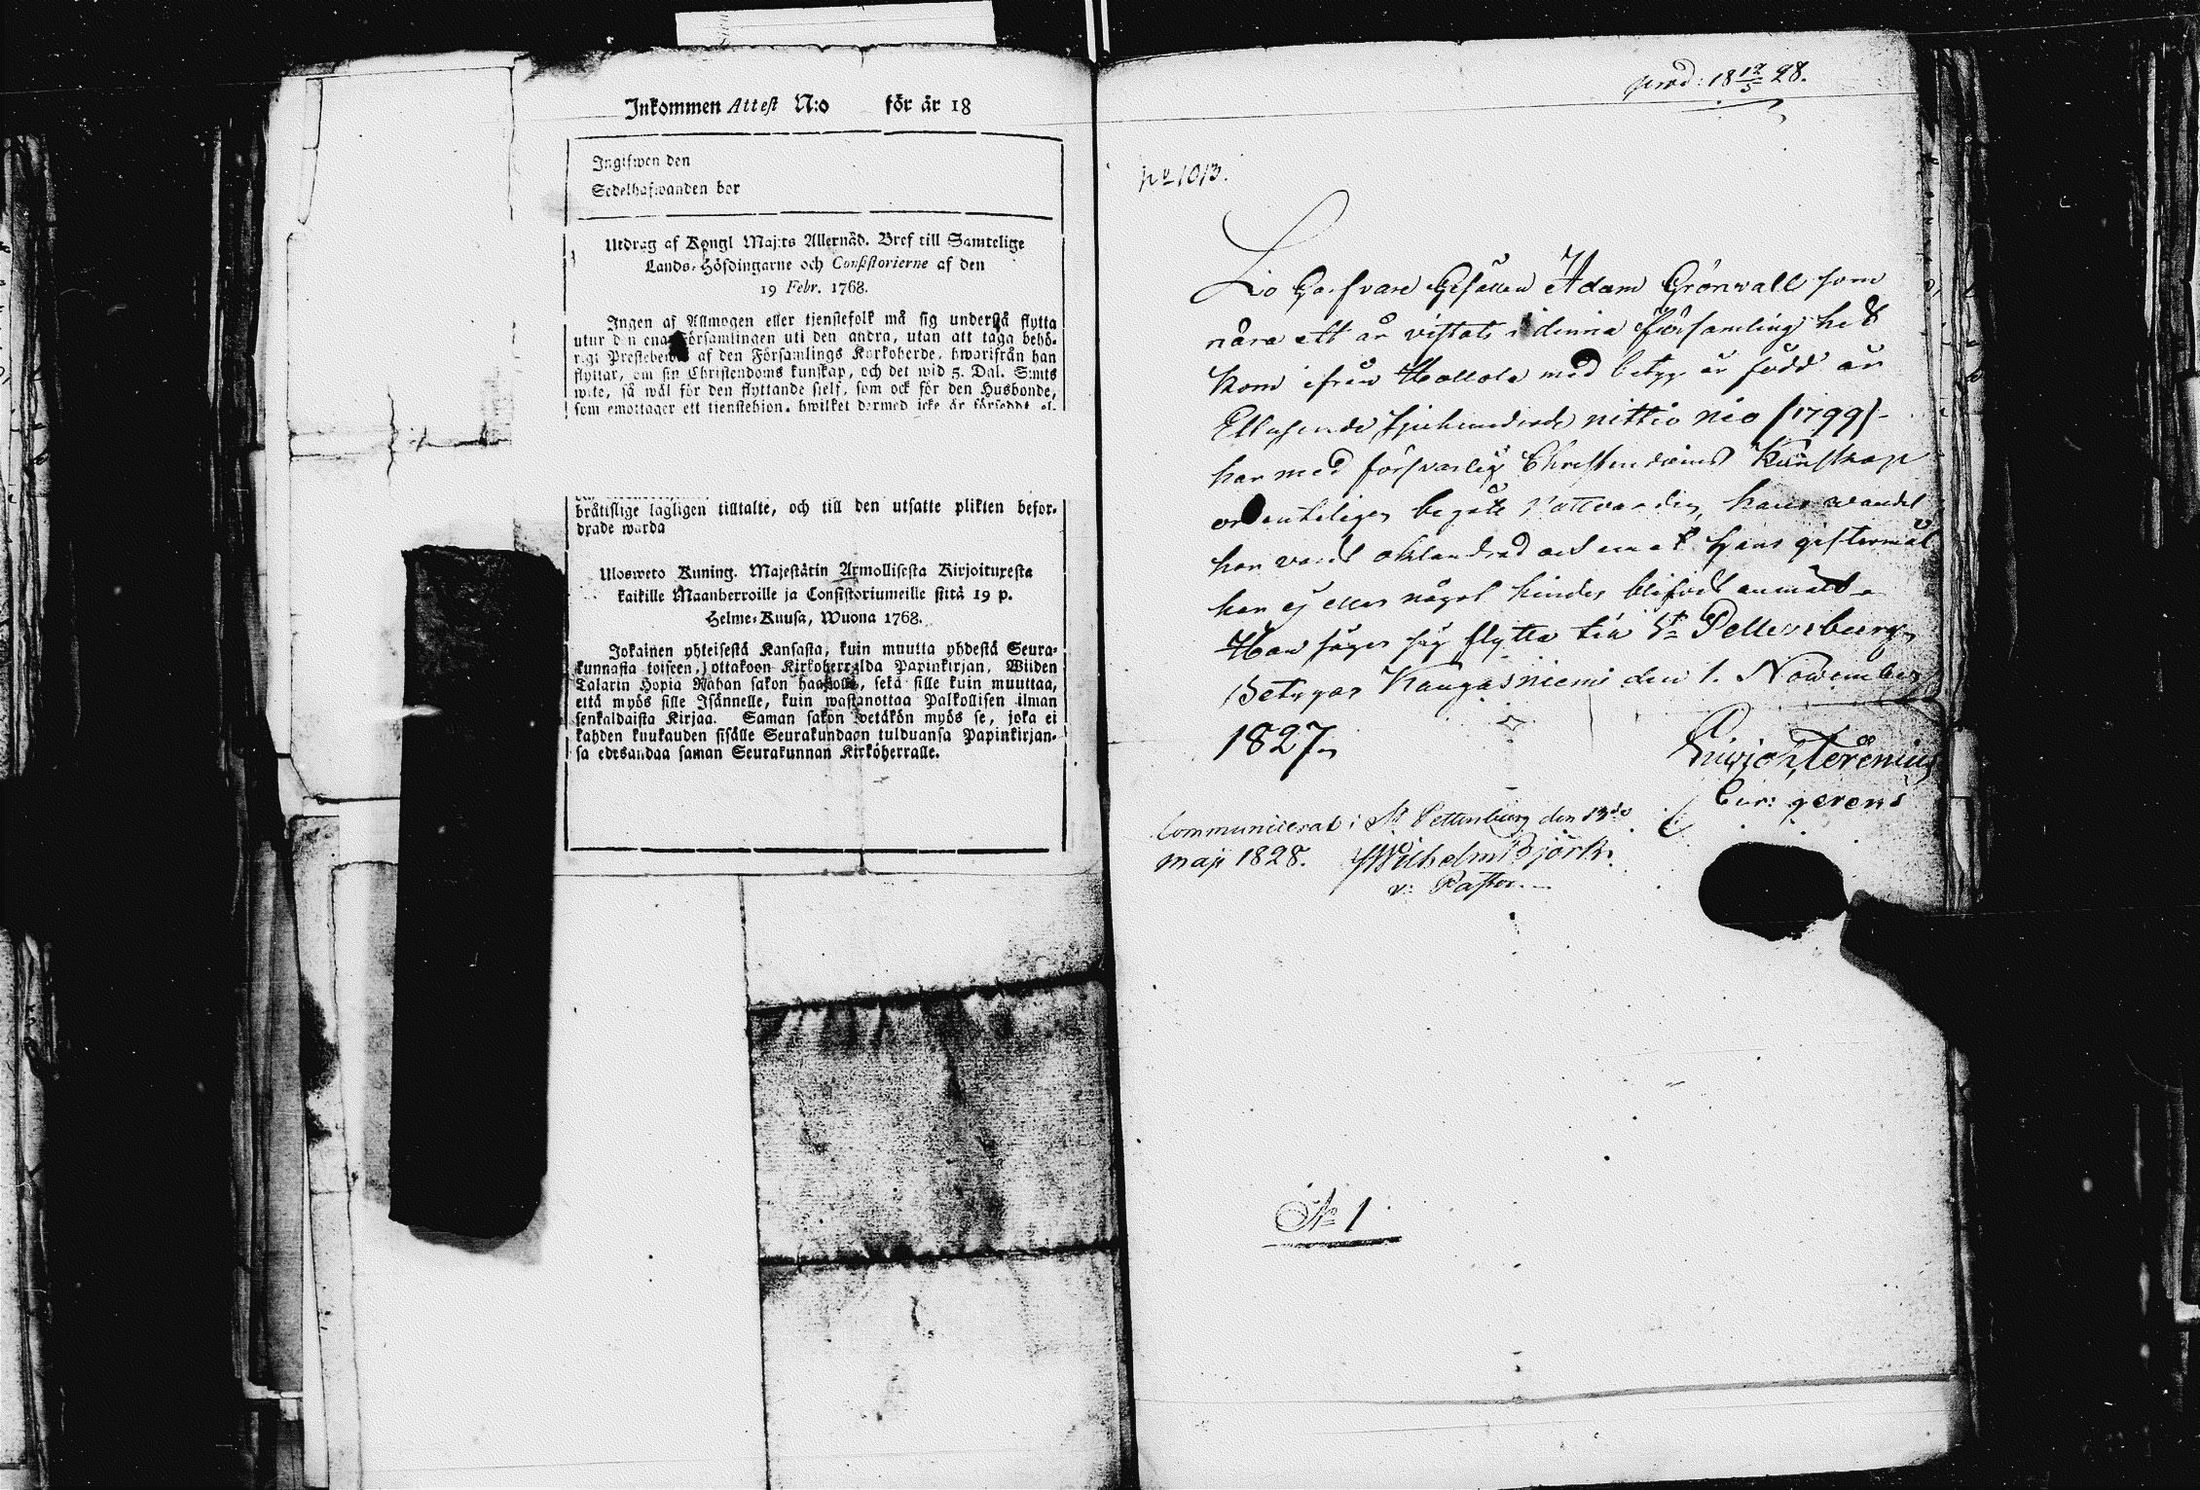 Inkommen Attest N:o för år 18
Ingifwen den
Sedelhafwanden bor
Utdrag af Kongl Maj:ts Allernåd. Bref till Samtelige
Lands-Höfdingarne och Consistorierne af den
19 Febr. 1768.
Ingen af Allmogen eller tjenstefolk må sig understå flytta
utur d n ena Församlingen uti den andra, utan att taga behö-
rigt Prestebe af den Församlings Kyrkoherde, hwarifrån han
flyttar, om sin Christendoms kunskap, och det wid 5. Dal. S:mts
wite, så wäl för den flyttande sielf, som ock för den Husbonde,
som emottager ett tienstehion, hwilket dermed icke är försedt el-
bråtislige lagligen tilltalte, och till den utsatte plikten befor-
drade warda
Ulosweto Kuning. Majestätin Armollisesta Kirjoituxesta
kaikille Maanherroille ja Consistoriumeille siitä 19 p.
Helme-Kuusa, Wuona 1768.
Jokainen yhteisestä Kansasta, kuin muutta yhdestä Seura-
kunnasta toiseen, ottakoon Kirkoherralda Papinkirjan, Wiiden
Talarin Hopia Rahan sakon haastolla, sekä sille kuin muuttaa,
että myös sille Isännelle, kuin wastanottaa Palkollisen ilman
senkaldaista Kirjaa. Saman sakon wetäkön myös se, joka ei
kahden kuukauden sisälle Seurakundaan tulduansa Papinkirjan-
sa edesandaa saman Seurakunnan Kirköherralle.
prod: 18 12/5 28.
No 1013.
Garfvare Gesällen Adam Grönvall som
nära ett år vistats i denna församling hit
kom ifrån Hollola med betyg är född år
Ettusende Sjuhundrade nittio nio (1799)
har med försvarlig Christendoms Kunskap
ordenteligen begått Nattvarden, hans wandel
har varit oklandrad och emot hans giftermål
har ej eller något hinder blifvit anmäldt.
Han säger sig flytta till St Pettersburg,
Betygar Kangasniemi den 1. November
1827,
Terenius
Cur: gerens
Communicerat i St Pettersburg den 13de
maji 1828. Wilhelm Björk.
v: Pastor.
No 1